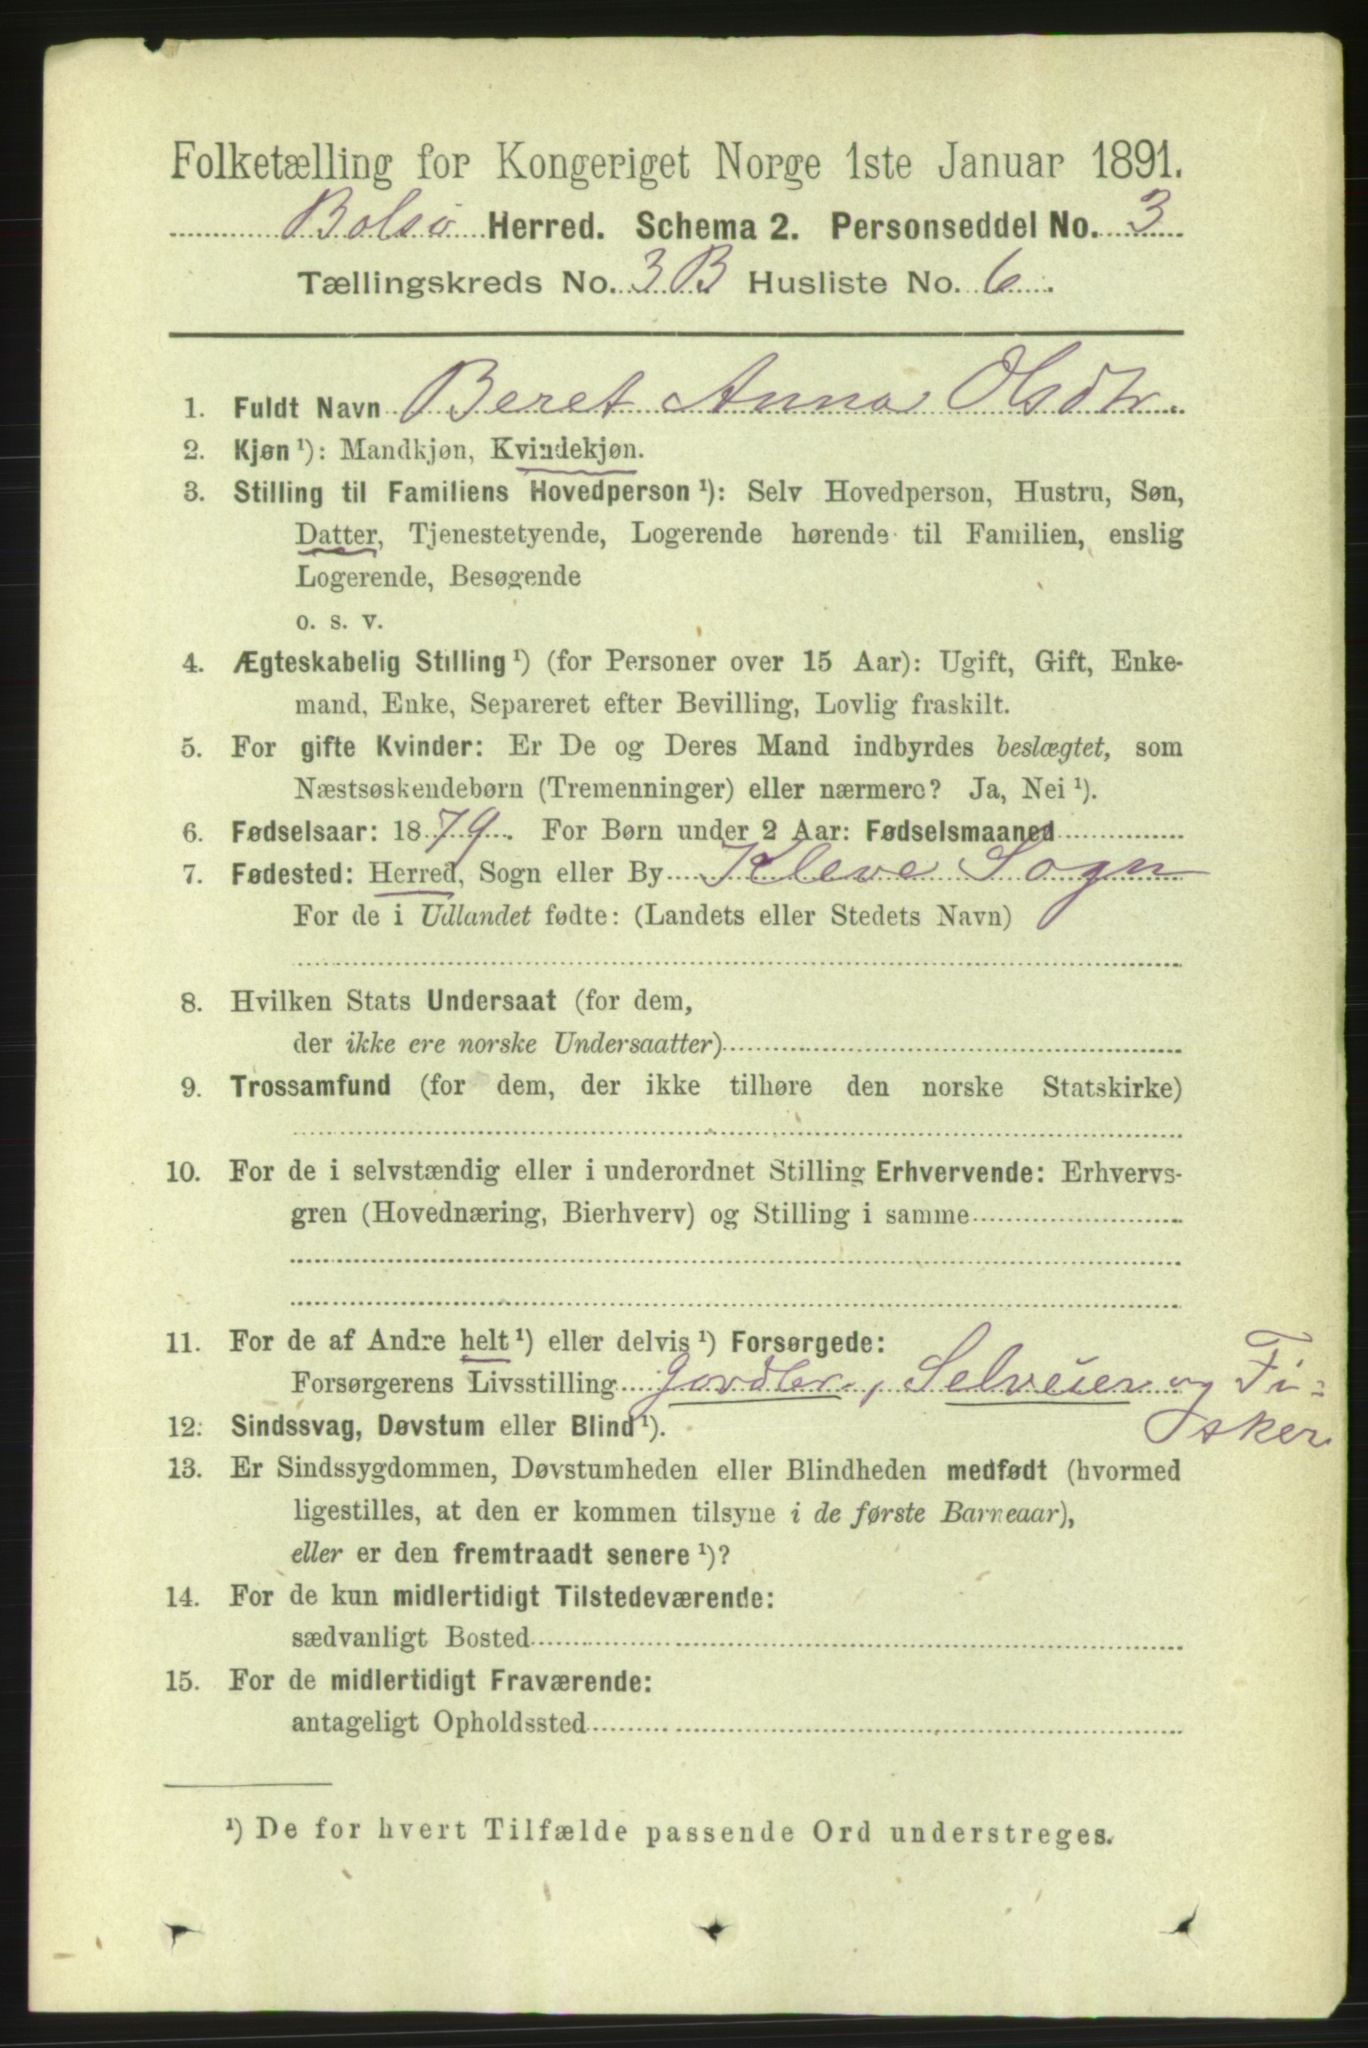 Folketælling for Kongeriget Norge 1ste Januar 1891.
Bolsø Herred. Schema 2. Personseddel No. 3
Tællingskreds No. 3 B Husliste No. 6.
1. Fuldt Navn Beret Anna Olsdtr.
2. Kjøn ¹): Mandkjøn, Kvindekjøn.
3. Stilling til Familiens Hovedperson ¹): Selv Hovedperson, Hustru, Søn,
Datter, Tjenestetyende, Logerende hørende til Familien, enslig
Logerende, Besøgende
o. s. v.
4. Ægteskabelig Stilling ¹) (for Personer over 15 Aar): Ugift, Gift, Enke-
mand, Enke, Separeret efter Bevilling, Lovlig fraskilt.
5. For gifte Kvinder: Er De og Deres Mand indbyrdes beslægtet, som
Næstsøskendebørn (Tremenninger) eller nærmere? Ja, Nei ¹).
6. Fødselsaar: 1879. For Børn under 2 Aar: Fødselsmaaned
7. Fødested: Herred, Sogn eller By Kleve Sogn
For de i Udlandet fødte: (Landets eller Stedets Navn)
8. Hvilken Stats Undersaat (for dem,
der ikke ere norske Undersaatter)
9. Trossamfund (for dem, der ikke tilhøre den norske Statskirke)
10. For de i selvstændig eller i underordnet Stilling Erhvervende: Erhvervs-
gren (Hovednæring, Bierhverv) og Stilling i samme
11. For de af Andre helt ¹) eller delvis ¹) Forsørgede:
Forsørgerens Livsstilling Jordbr., Selveier og Fi-
sker
12. Sindssvag, Døvstum eller Blind ¹).
13. Er Sindssygdommen, Døvstumheden eller Blindheden medfødt (hvormed
ligestilles, at den er kommen tilsyne i de første Barneaar),
eller er den fremtraadt senere ¹)?
14. For de kun midlertidigt Tilstedeværende:
sædvanligt Bosted
15. For de midlertidigt Fraværende:
antageligt Opholdssted
¹) De for hvert Tilfælde passende Ord understreges.